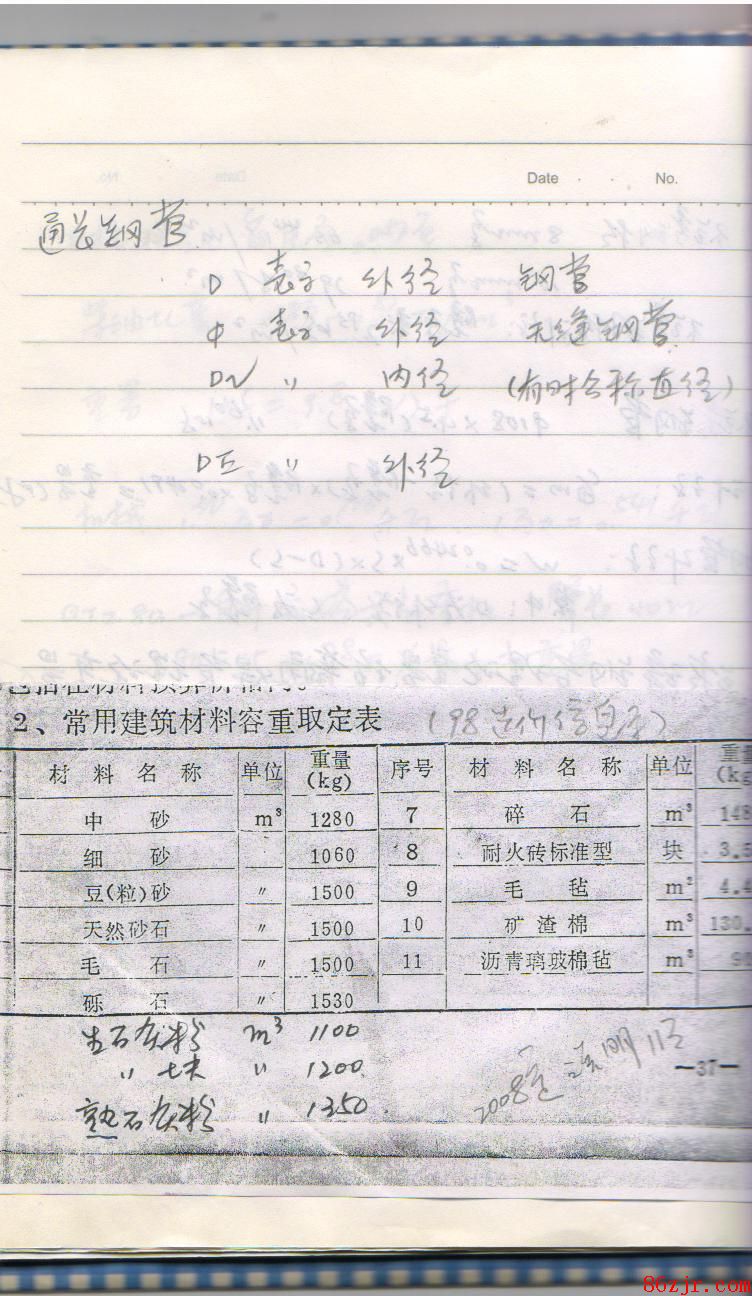 Date No.
通长钢管
D 表示 外径 钢管
Φ 表示 外径 无缝钢管
DN 〃 内径 (有时公称直径)
DE 〃 外径
2、常用建筑材料容重取定表 (98造价信息
材料名称 单位 重量(kg) 序号 材料名称 单位
中砂 m³ 1280 7 碎石 m³
细砂 1060 8 耐火砖标准型 块 3.5
豆(粒)砂 〃 1500 9 毛毡 m² 4.4
天然砂石 〃 1500 10 矿渣棉 m³ 130.
毛石 〃 1500 11 沥青璃玻棉毡 m³
砾石 〃 1530
生石灰粉 m³ 1100
〃 块 〃 1200
熟石灰粉 〃 1350
2008定
—37—
86zjr.com